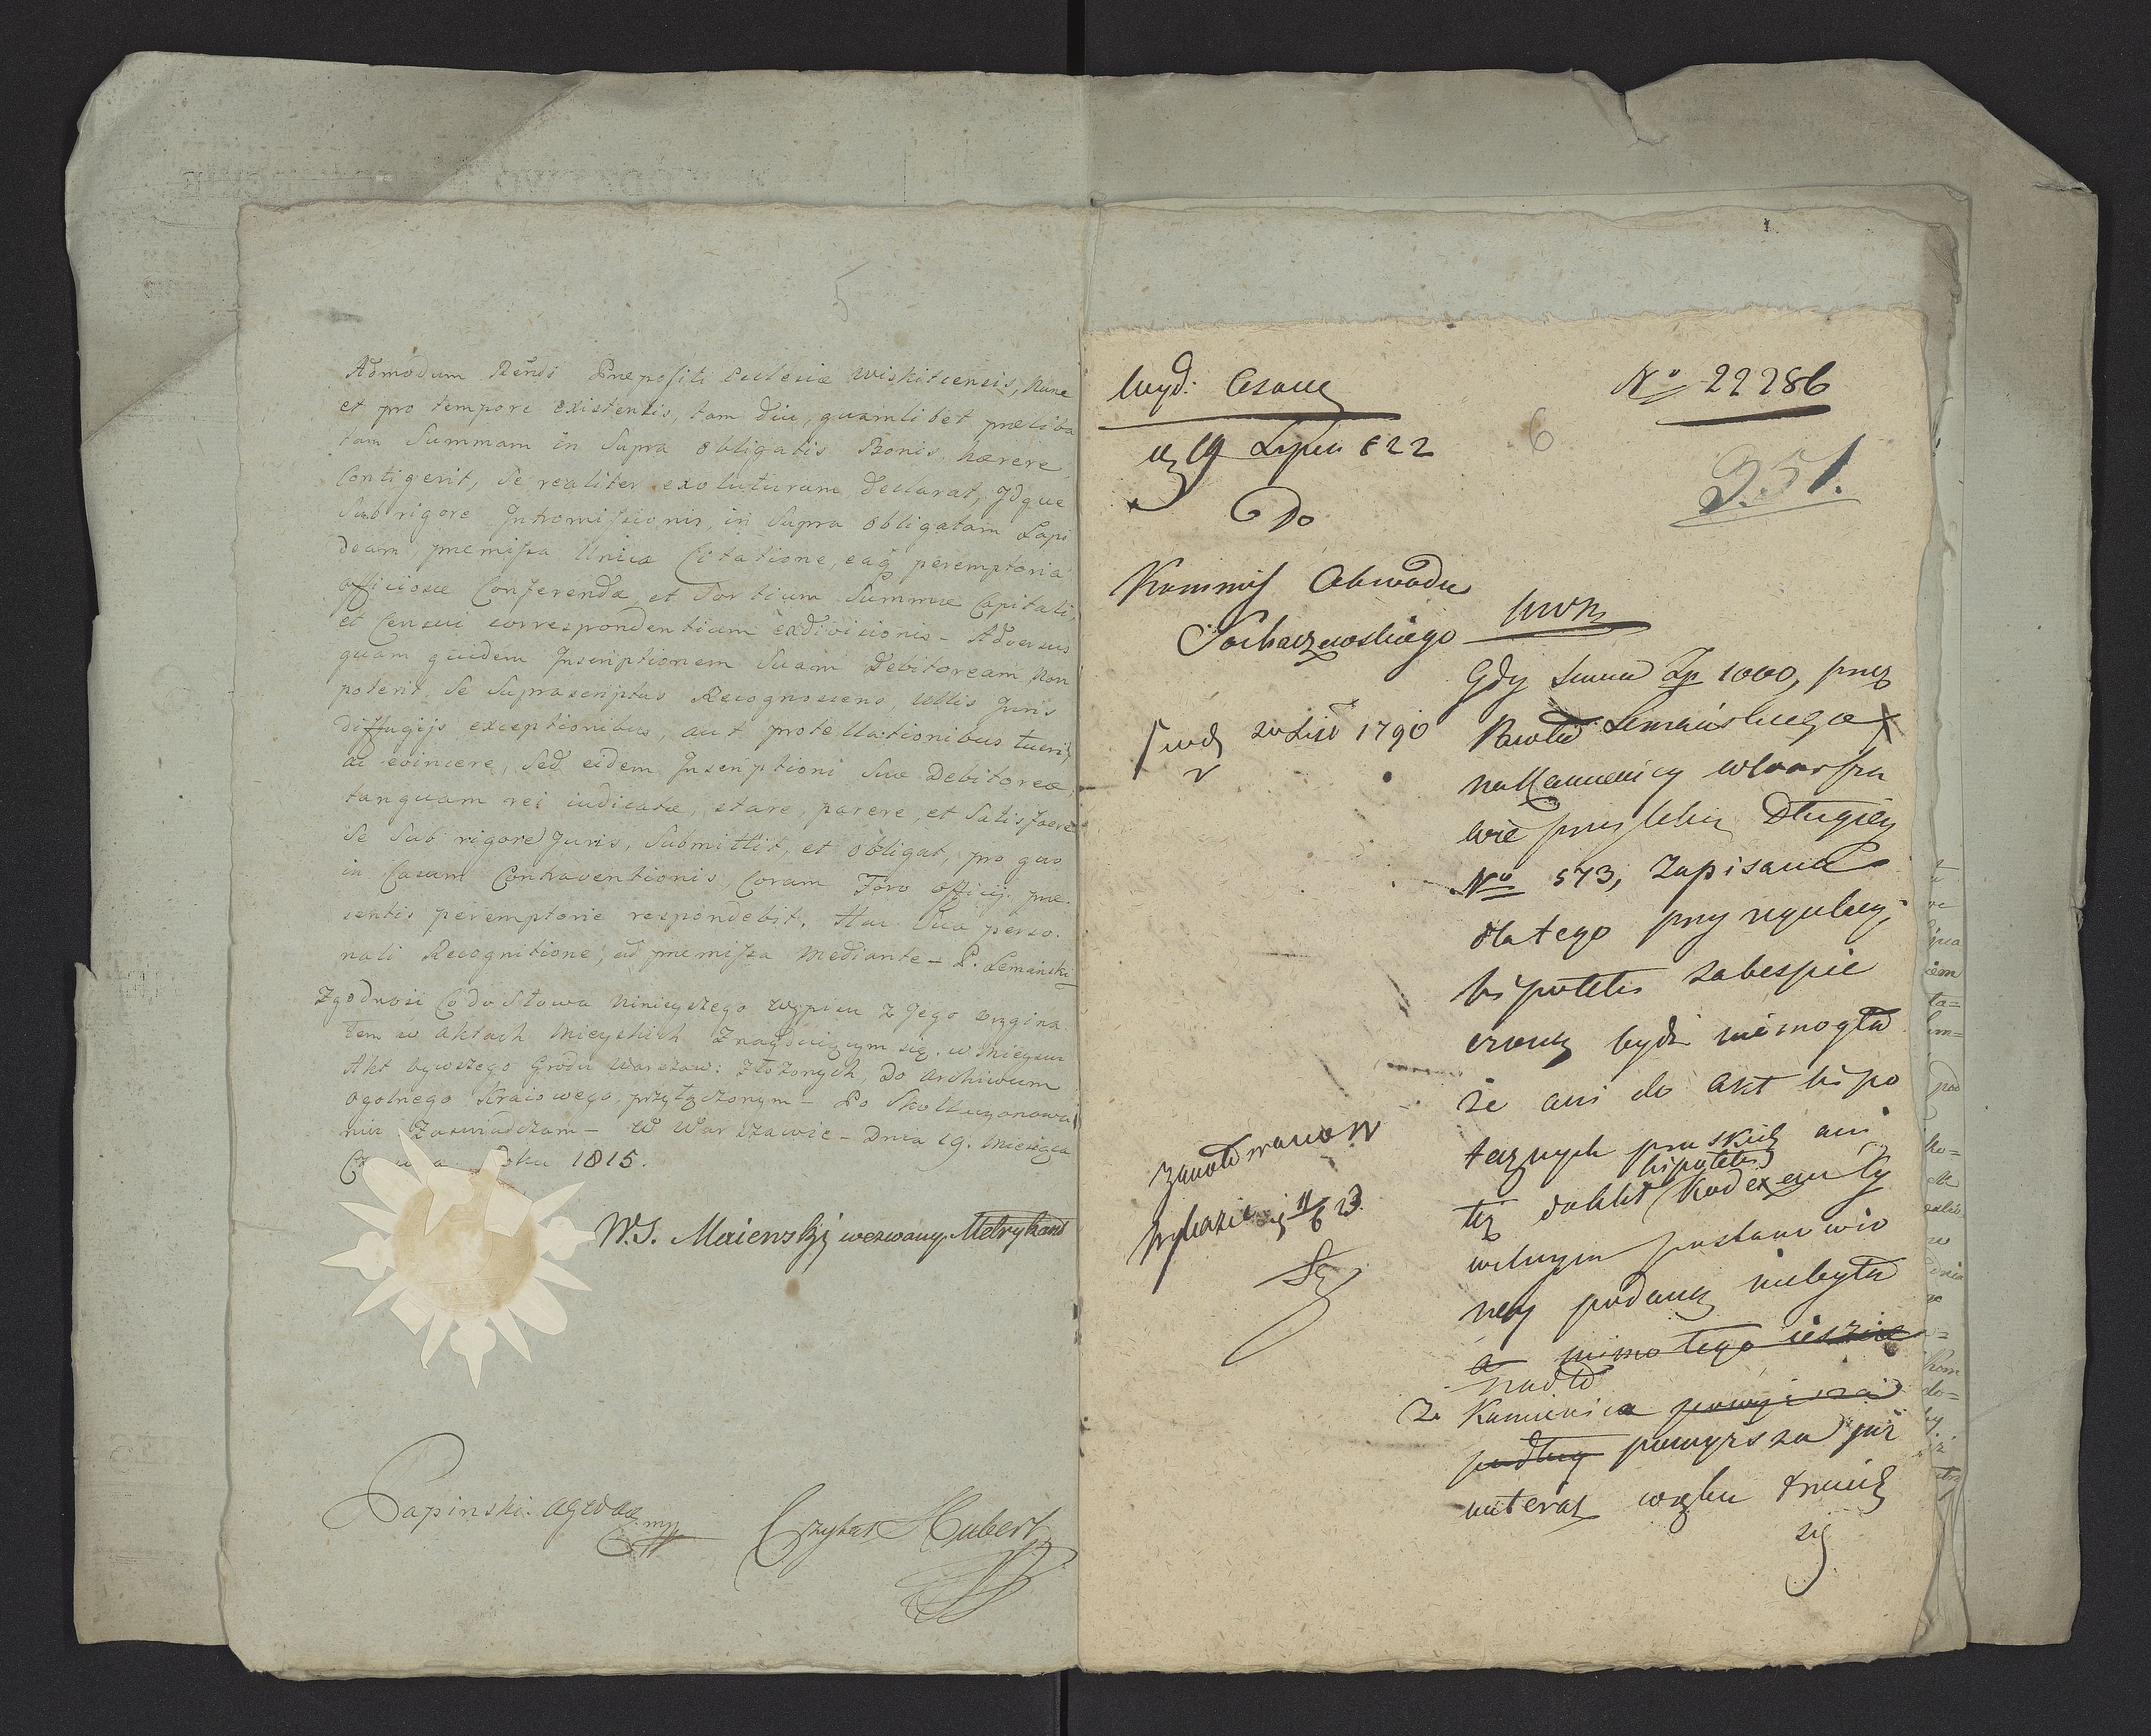 5
Admodum Rendi Præpositi Ecclesiæ Wiskitcensis, nunc
et pro tempore existentis, tam diu, quamlibet præliba
tam Summam in Supra obligatis Bonis, hærere
Contigerit, Se realiter exoluturum declarat, Idque
Sub rigore Intromissionis in Supra obligatam Lapi
deam, præmissa Unica Citatione, eaq peremptoria
officiose Conferenda, et Sortium Summæ Capitali,
et Censui correspondentium exdivisionis - Adversus
quam quidem Inscriptionem Suam Debitoream non
poterit, Se Suprascriptus Recognoscens, ullis Juris
diffugijs exceptionibus, aut protestationibus tueri,
ac evincere, Sed eidem Inscriptioni Suæ Debitoreæ,
tanquam rei iudicatæ, stare parere, et Satisfacere
Se Sub rigore Juris, Submittit, et obligat, pro quo
in Casum Contraventionis, Coram Foro officij præ
sentis peremptorie respondebit, Hac Sua perso
nali Recognitione, ad præmissa mediante - P. Lemański
Zgodność Co do Słowa ninieyszego wypisu z Jego orygina
łem w Aktach Mieyskich Znayduiącym się, w mieyscu
Akt bywszego Grodu Warszaw: złożonych, do Archiwum
ogolnego Kraiowego, przyłączonym - Po Skollacyonowa
niu Zaświadczam - W Warszawie - Dnia 19. Miesiąca
Czerwca Roku 1815.
W.S. Maiewski wezwany Metrykant
Łapinski. Czytał Hubert
Nº 22286
6
351.
19 Lipca 822
Do
Kommis Obwodu
Sochaczewskiego
Gdy summa Zp 1000, przez
1790 Pawła Lemańskiego
na Kamienicy w Warsza
wie przy Ulicy Długiey
Nº 573, zapisana
dlatego przy regulacyi
hipoteki zabespie
czoną bydź niemogła
że ani do Akt hipo
tecznych pruskich ani
hipoteki
też do Akt Kodexem Cy
wilnym postanowio
ney podaną niebyła
a mimo tego ieszcze
nadto
Ze Kamienica powyższa
podług powyższa już
nieteraz w ręku trzecich
się
zanotowano w
wykazie 11/6 23.